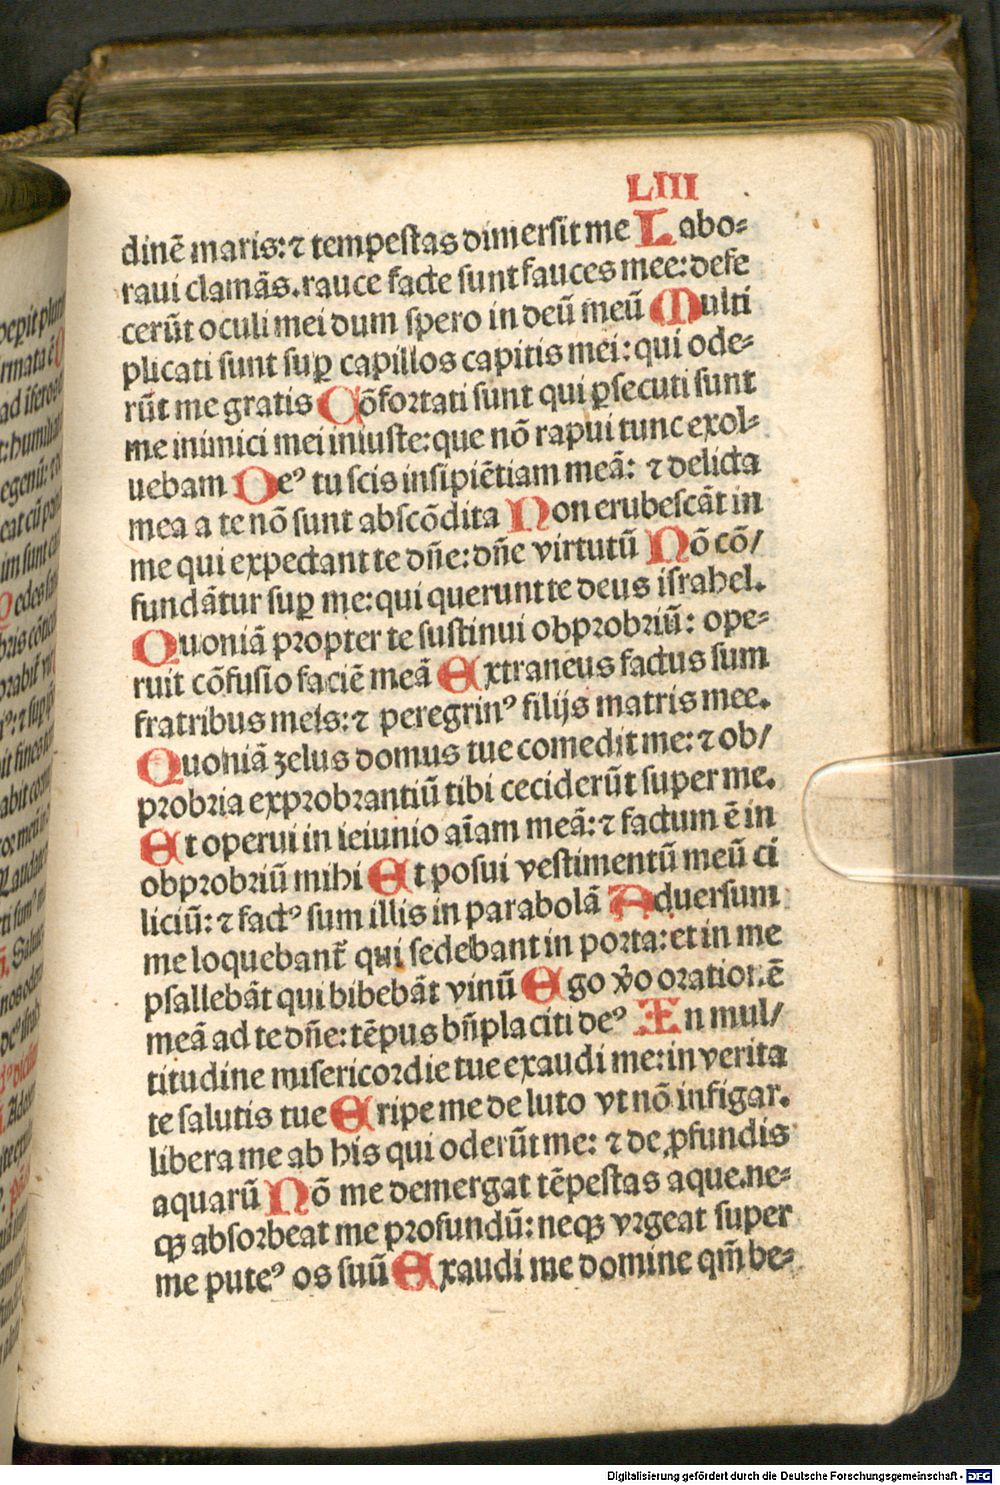 LIII
dinē maris: ⁊ tempestas dimersit me Labo-
raui clamās. rauce facte sunt fauces mee: defe
cerūt oculi mei dum spero in deū meū Multi
plicati sunt suꝑ capillos capitis mei: qui ode-
rūt me gratis Cōfortati sunt qui ꝑsecuti sunt
me inimici mei iniuste: que nō rapui tunc exol-
uebam Deꝰ tu scis insipiētiam meā: ⁊ delicta
mea a te nō sunt abscōdita Non erubescāt in
me qui expectant te dn̄e: dn̄e virtutū Nō cō/
fundātur suꝑ me: qui querunt te deus israhel.
Quoniā propter te sustinui obprobriū: ope-
ruit cōfusio faciē meā Extraneus factus sum
fratribus meis: ⁊ peregrinꝰ filijs matris mee.
Quoniā zelus domus tue comedit me: ⁊ ob/
probria exprobrantiū tibi ceciderūt super me.
Et operui in ieiunio aīam meā: ⁊ factum ē in
obprobriū mihi Et posui vestimentū meū ci
liciū: ⁊ factꝰ sum illis in parabolā Aduersum
me loquebant̄ qui sedebant in porta: et in me
psallebāt qui bibebāt vinū Ego v̄o orationē
meā ad te dn̄e: tēpus bn̄placiti deꝰ In mul/
titudine misericordie tue exaudi me: in verita
te salutis tue Eripe me de luto vt nō infigar.
libera me ab his qui oderūt me: ⁊ de ꝓfundis
aquarū Nō me demergat tēpestas aque. ne-
qꝫ absorbeat me profundū: neqꝫ vrgeat super
me puteꝰ os suū Exaudi me domine qm̄ be-
Digitalisierung gefördert durch die Deutsche Forschungsgemeinschaft - DFG